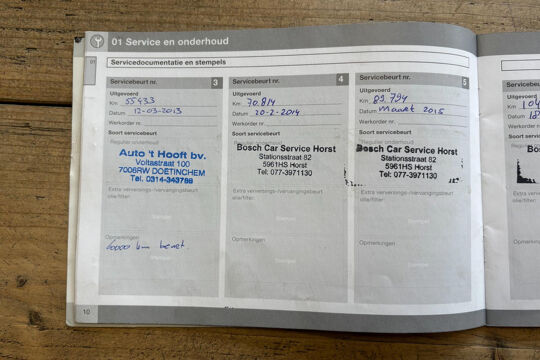 01 Service en onderhoud
01
Servicedocumentatie en stempels
Servicebeurt nr. 3
Uitgevoerd
Km 55433
Datum 12-03-2013
Werkorder nr.
Soort servicebeurt
Regulier onderhoud
Auto 't Hooft bv.
Voltastraat 100
7006RW DOETINCHEM
Tel. 0314-343788
Extra verversings-/vervangingsbeurt
olie/filter:
Stempel
Opmerkingen
Stempel
Servicebeurt nr. 4
Uitgevoerd
Km 70.814
Datum 20-2-2014
Werkorder nr.
Soort servicebeurt
Regulier onderhoud
Bosch Car Service Horst
Stationsstraat 82
5961HS Horst
Tel: 077-3971130
Extra verversings-/vervangingsbeurt
olie/filter:
Stempel
Opmerkingen
Stempel
Servicebeurt nr. 5
Uitgevoerd
Km 89.794
Datum Maart 2015
Werkorder nr.
Soort servicebeurt
Regulier onderhoud
Bosch Car Service Horst
Stationsstraat 82
5961HS Horst
Tel: 077-3971130
Extra verversings-/vervangingsbeurt
olie/filter:
Stempel
Opmerkingen
Stempel
Servic
Uitgevo
Km 104
Datum 18
Werkord
Soort se
Bos
Extra ve
olie/filte
Opmerk
10